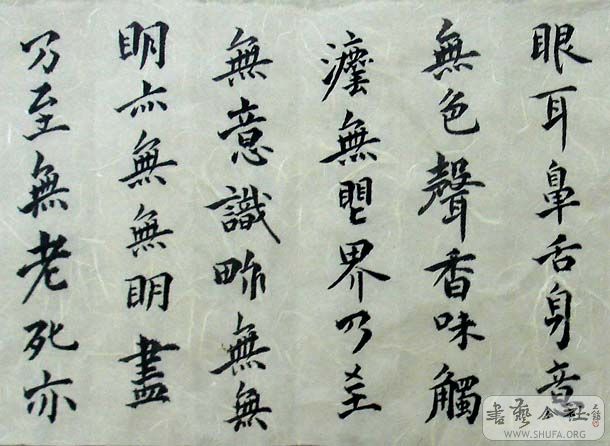 眼耳鼻舌身意
無色聲香味觸
灋無眼界乃至
無意識畍無無
明亦無無明盡
乃至無老死亦
書藝公社
WWW.SHUFA.ORG